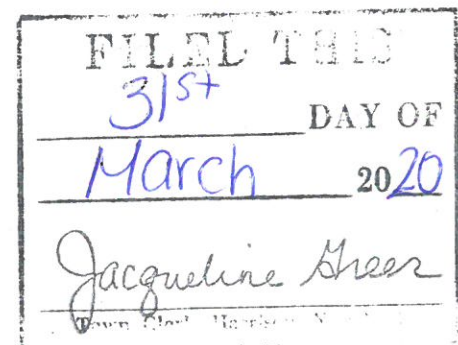 FILED THIS
31st DAY OF
March 2020
Jacqueline Greer
Town Clerk Harrison